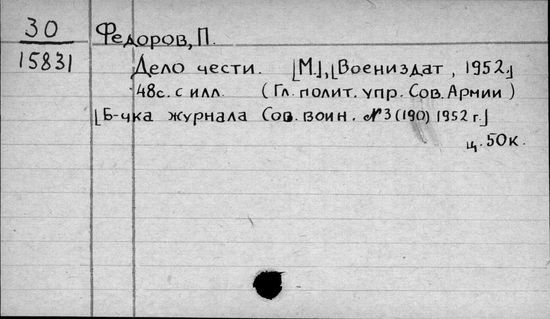 30
15831
Федоров, П.
Дело чести. [М.], [Воениздат, 1952.]
48с. с илл. (Гл. полит. упр. Сов. Армии)
[Б-чка журнала Сов. воин. №3 (190) 1952 г.]
ц. 50к.